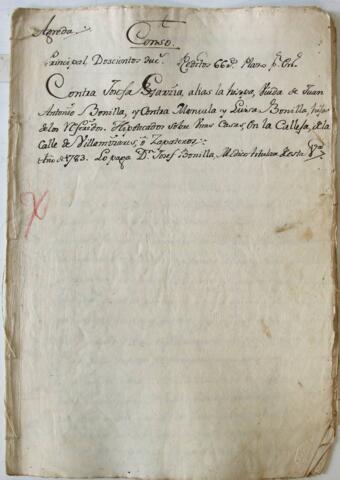 Agreda
Censo.
Principal, Doscientos duc.s Reditos 66 r.s Plazo p.r
Contra Josefa Gravia, alias la hueva, Viuda de Juan
Antonio Bonilla, y Contra Manuela y Luisa Bonilla, hijas
de los referidos. Hipotecados sobre unas Casas, en la Calleja, de la
Calle de Villamizar, o Zapateros:
Año de 1783. Lo paga D.n Josef Bonilla, Medico titular de esta V.a
X